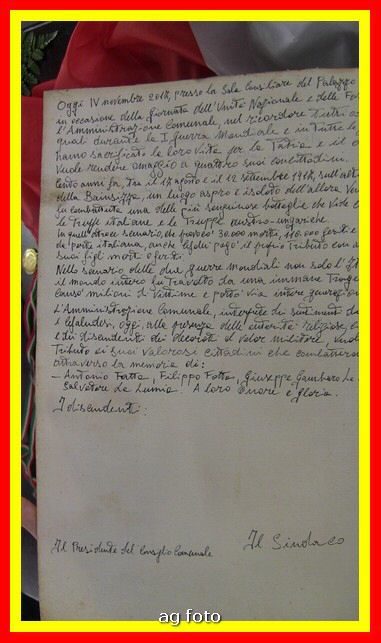 Oggi IV novembre 2017, presso la Sala Consiliare del Palazzo
in occasione della Giornata dell'Unità Nazionale e delle Fo
l'Amministrazione Comunale, nel ricordare tutti co
quali durante la I Guerra Mondiale e in tutte le
hanno sacrificato la loro vita per la Patria e il
vuole rendere omaggio a quattro suoi concittadini.
Cento anni fa, tra il 17 agosto e il 12 settembre 1917, sull'alt
della Bainsizza, un luogo aspro e isolato dell'allora
fu combattuta una delle più sanguinose battaglie che vide
le truppe italiane e le truppe austro-ungariche.
In quell'atroce scenario, che provocò 30.000 morti, 110.000 feriti e
da parte italiana, anche Cefalù pagò il proprio tributo con
suoi figli morti o feriti.
Nello scenario delle due guerre mondiali non solo l'It
il mondo intero fu travolto da una immane trage
causò milioni di vittime e portò via intere generazion
L'Amministrazione Comunale, interprete dei sentimenti de
Cefaludesi, oggi, alla presenza delle autorità religiose, ci
e dei discendenti dei decorati al valor militare, vuole
tributo ai suoi valorosi cittadini che combatterono
attraverso la memoria di:
- Antonio Fatta, Filippo Fatta, Giuseppe Gambaro
Salvatore La Lumia. A loro Onore e Gloria.
I discendenti:
Il Presidente del Consiglio Comunale
Il Sindaco
ag foto